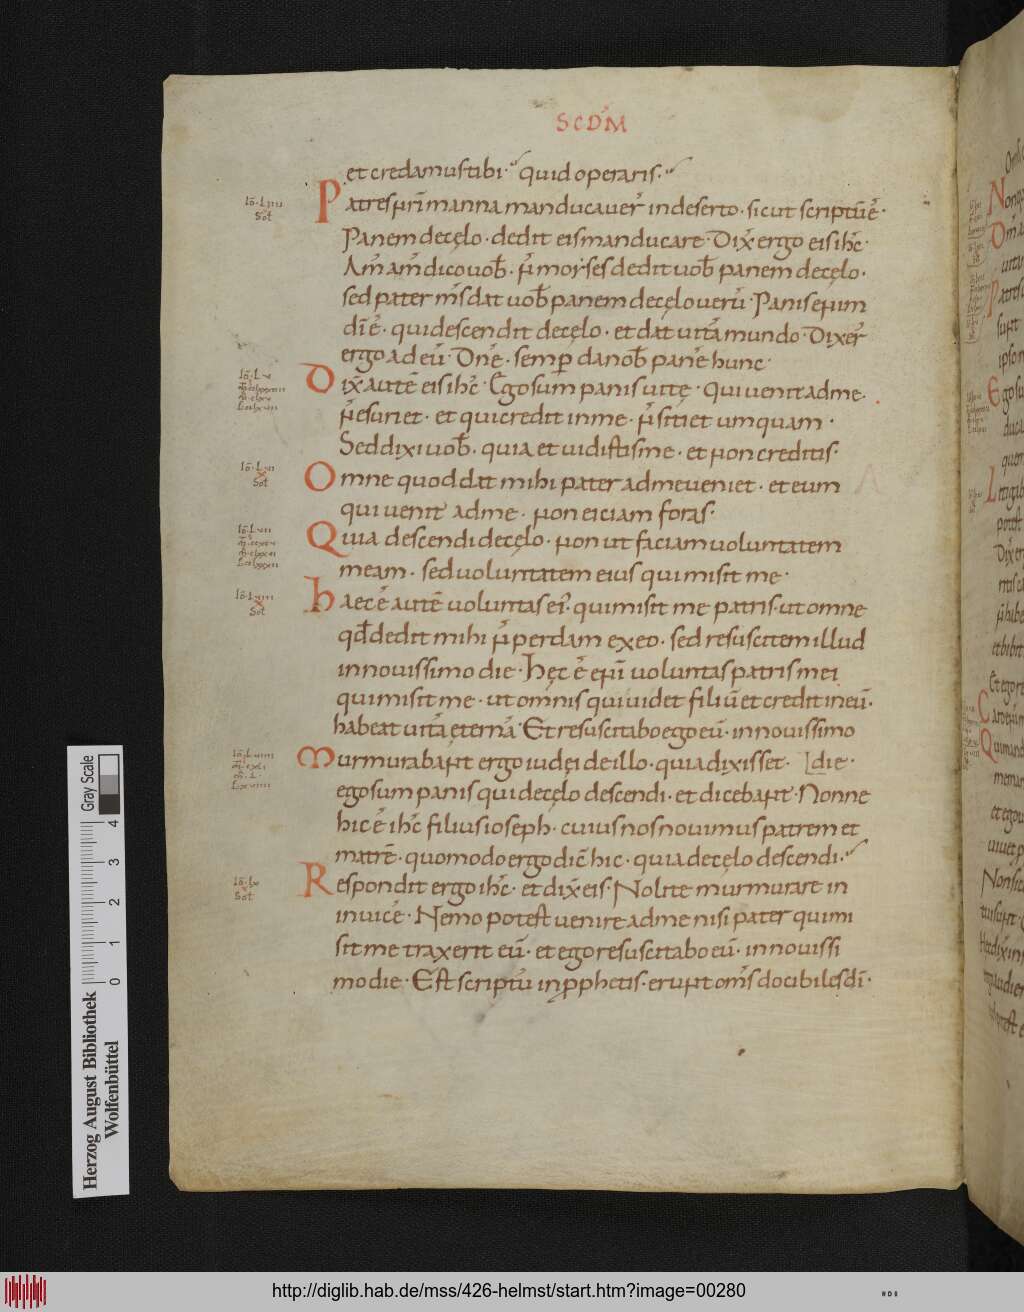 SCDM
et credamus tibi · quid operaris ·
Iō · Liiii
Sol
Patres nr̄i manna manducauer̄ in deserto · sicut scriptū ē ·
Panem de cęlo · dedit eis manducare · Dix̄ ergo eis ihc̄ ·
Am̄ am̄ dico uob̄ · n̄ moyses dedit uob̄ panem de cęlo ·
sed pater m̄s dat uob̄ panem de cęlo uerū · Panis enim
dī ē · qui descendit de cęlo · et dat uitā mundo · Dixer̄
ergo ad eū · Dn̄e · semp da nob̄ panē hunc ·
Iō · Lv
Dix̄ autē eis ihc̄ · Ego sum panis uitę · Qui uenit ad me ·
n̄ esuriet · et qui credit in me · n̄ sitiet umquam ·
Sed dixi uob̄ · quia et uidistis me · et non creditis ·
Iō · Lvi
Sol
Omne quod dat mihi pater ad me ueniet · et eum
qui uenit ad me · non eiciam foras ·
Iō · Lvii
Quia descendi de cęlo · non ut faciam uoluntatem
meam · sed uoluntatem eius qui misit me ·
Iō · Lviii
Sol
haec ē autē uoluntas ei' · qui misit me patris · ut omne
qd̄ dedit mihi n̄ perdam ex eo · sed resuscitem illud
in nouissimo die · hęc ē enī uoluntas patris mei
qui misit me · ut omnis qui uidet filiū et credit in eū ·
habeat uitā eternā · Et resuscitabo ego eū · in nouissimo
Iō · Lviiii
Murmurabant ergo iudęi de illo · quia dixisset · [die ·
ego sum panis qui de cęlo descendi · et dicebant · Nonne
hic ē ihc̄ filius ioseph · cuius nos nouimus patrem et
matrē · quomodo ergo dic̄ hic · quia de cęlo descendi ·
Iō · Lx
Sol
Respondit ergo ihc̄ · et dix̄ eis · Nolite murmurare in
inuicē · Nemo potest uenire ad me nisi pater qui mi
sit me traxerit eū · et ego resuscitabo eū · in nouissi
mo die · Est scriptū in pphetis · erunt om̄s docibiles dī ·
Gray Scale
0 1 2 3 4
Herzog August Bibliothek
Wolfenbüttel
http://diglib.hab.de/mss/426-helmst/start.htm?image=00280